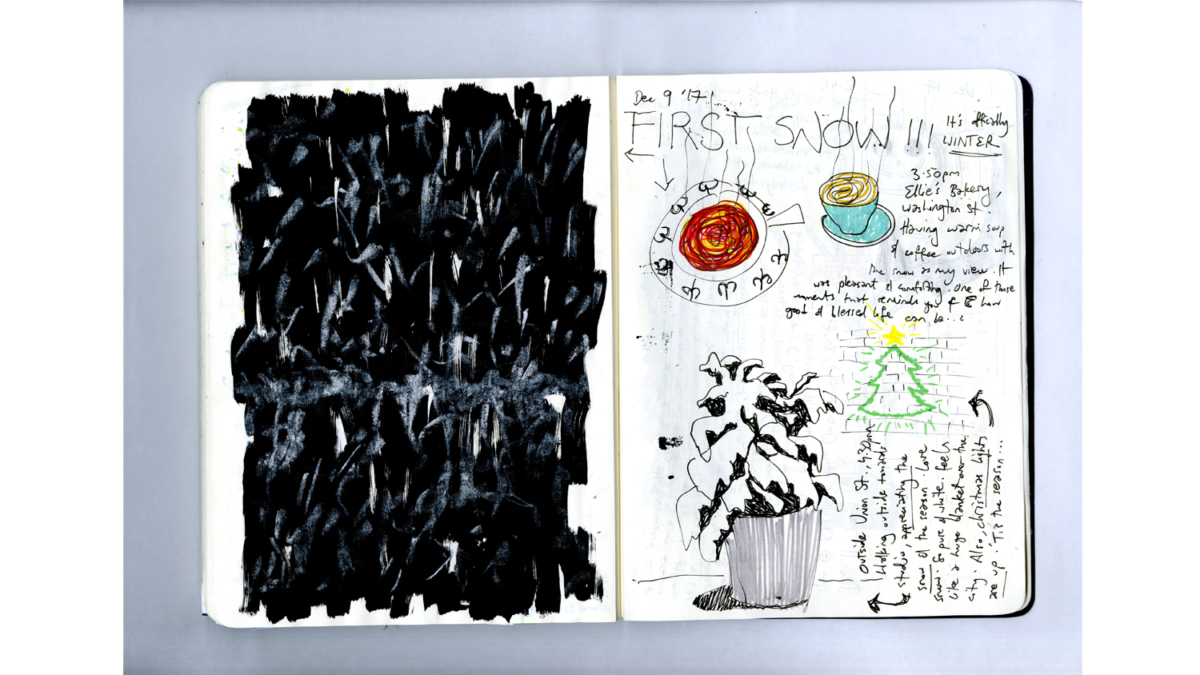 Dec 9 '17!
FIRST SNOW !!!
It's officially
WINTER
3:50pm
Ellie's Bakery,
Washington St.
Having warm soup
& coffee outdoors with
the snow as my view. It
was pleasant & comforting. One of those
moments that reminds you of how
good & blessed life can be...
Outside Union St., 4:30pm
Walking outside towards
studio, appreciating the
snow & the season. Love
snow. So pure & white. Feels
like a huge blanket over the
city. Also, christmas lights
are up. Tis the season...